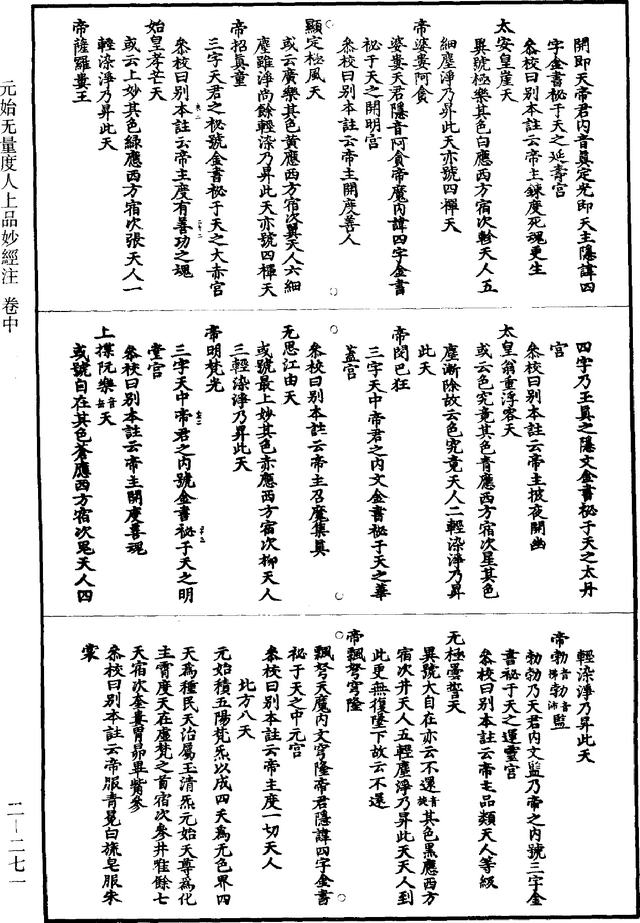 開即天帝君内音真定光即天主隱諱四
字金書秘于天之延壽宮
叅校曰别本註云帝主鍊度死魂更生
太安皇崖天
異號極樂其色白應西方宿次軫天人五
細塵淨乃昇此天亦號四禪天
帝婆婁阿貪
婆婁天君隱音阿貪帝魔内諱四字金書
秘于天之開明宮
叅校曰别本註云帝主開度善人
顯定極風天
或云廣樂其色黄應西方宿次翼天人六細
塵雖淨尚餘輕染乃昇此天亦號四禪天
帝招真童
三字天君之秘號金書秘于天之大赤宮
叅校曰别本註云帝主度有善功之魂
始皇孝芒天
或云上妙其色綠應西方宿次張天人一
輕染淨乃昇此天
帝薩羅婁王
四字乃玉真之隱文金書秘于天之太丹
宮
叅校曰别本註云帝主披夜開幽
太皇翁重浮容天
或云色究竟其色青應西方宿次星其色
塵漸除故云色究竟天人二輕染淨乃昇
此天
帝閔巴狂
三字天中帝君之内文金書秘于天之華
蓋宮
叅校曰别本註云帝主召魔集真
无思江由天
或號最上妙其色赤應西方宿次柳天人
三輕染淨乃昇此天
帝明梵光
三字天中帝君之内號金書秘于天之明
堂宮
叅校曰别本註云帝主開度善魂
上揲阮樂音岳天
或號自在其色蒼應西方宿次鬼天人四
輕染淨乃昇此天
帝勃音拂勃音沛監
勃勃乃天君内文監乃帝之内號三字金
書秘于天之運靈宮
叅校曰别本註云帝主品類天人等級
无極曇誓天
異號大自在亦云不還音旋其色黑應西方
宿次井天人五輕塵淨乃昇此天天人到
此更無復墜下故云不還
帝飄弩穹隆
飄弩天魔内文穹隆帝君隱諱四字金書
秘于天之中元宮
叅校曰别本註云帝主度一切天人
北方八天
元始積五陽梵炁以成四天為无色界四
天為種民天治屬玉清炁元始天尊為化
主霄度天在虛梵之首宿次參井唯餘七
天宿次奎婁胃昴畢觜參
叅校曰别本註云帝服青冕白旒皂服朱
裳
元始无量度人上品妙經注 卷中
二－二七一